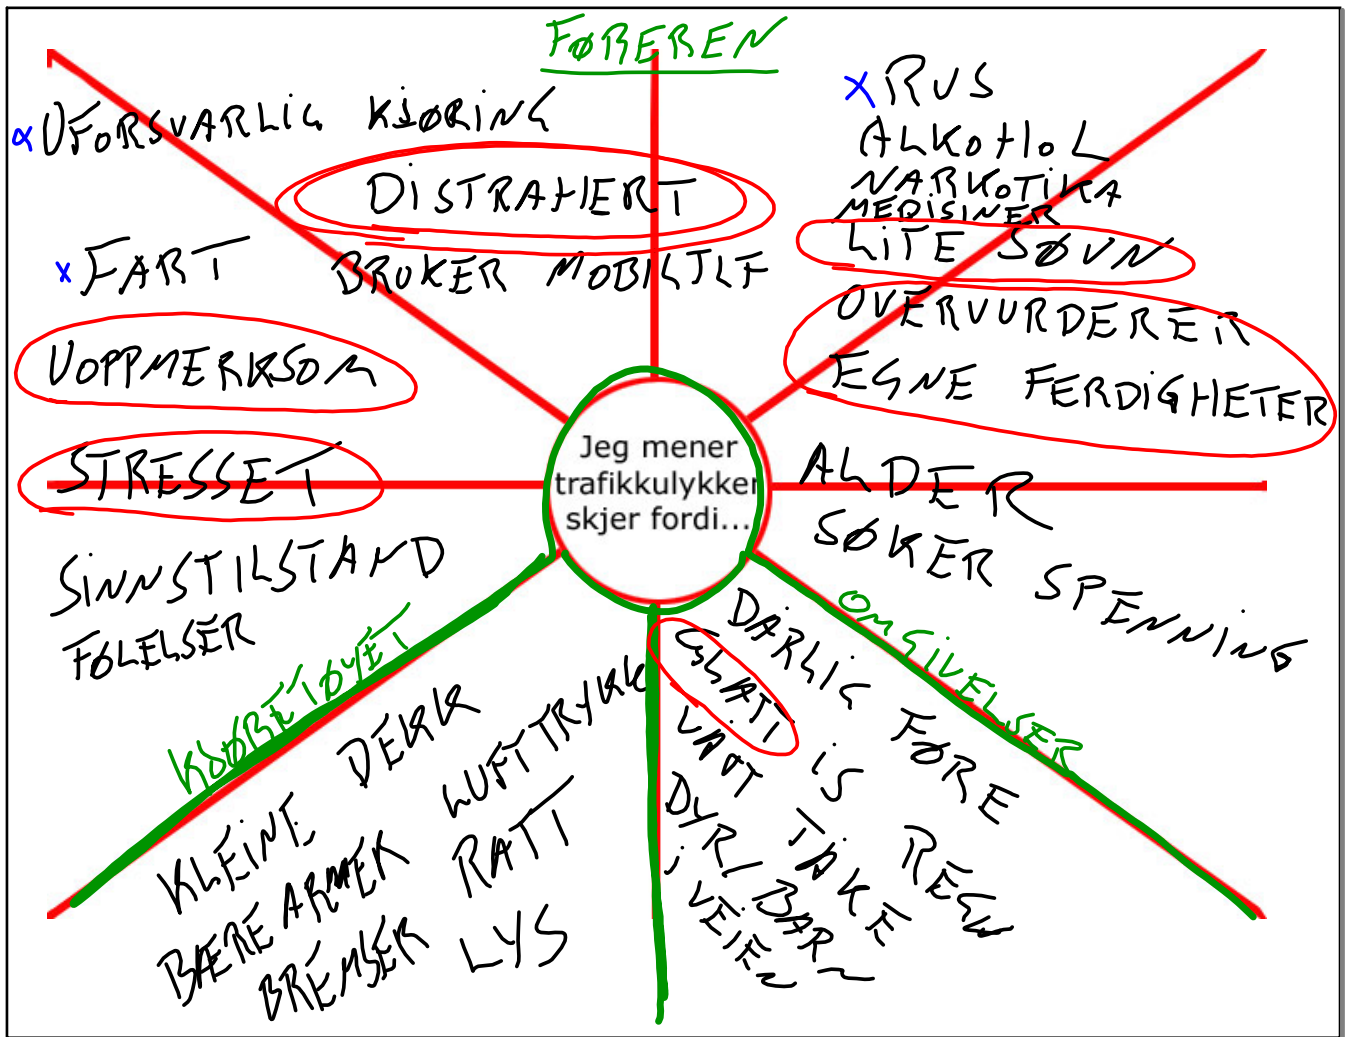 FØREREN
x UFORSVARLIG KJØRING
DISTRAHERT
BRUKER MOBILTLF
x FART
UOPPMERKSOM
STRESSET
SINNSTILSTAND
FØLELSER
x RUS
ALKOHOL
NARKOTIKA
MEDISINER
LITE SØVN
OVERVURDERER
EGNE FERDIGHETER
ALDER
SØKER SPENNING
Jeg mener
trafikkulykker
skjer fordi...
KJØRETØYET
DEKK
LUFTTRYKK
KLEINE
BÆREARMER
RATT
BREMSER
LYS
OMGIVELSER
DÅRLIG FØRE
GLATT
IS REGN
VÅTT TÅKE
DYR/BARN
i VEIEN